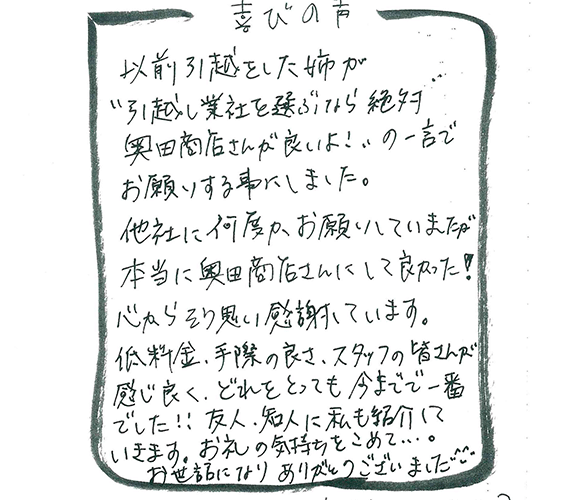 喜びの声
以前引越をした姉が
"引越し業社を選ぶなら絶対
奥田商店さんが良いよ!"の一言で
お願いする事にしました。
他社に何度か、お願いしていましたが
本当に奥田商店さんにして良かった!
心からそう思い感謝しています。
低料金、手際の良さ、スタッフの皆さんが
感じ良く、どれをとっても今までで一番
でした!! 友人、知人に私も紹介して
いきます。お礼の気持ちをこめて…。
お世話になりありがとうございました^^